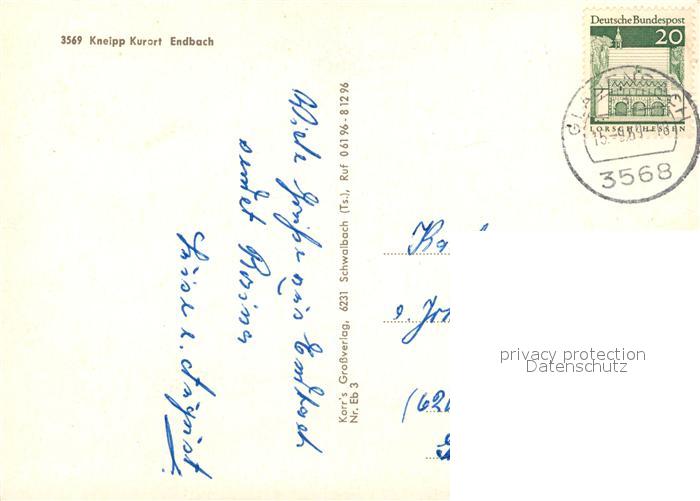 3569 Kneipp Kurort Endbach
Deutsche Bundespost
20
LORSCH/HESSEN
3568
Viele Grüße aus Endbach
sendet
Luise u. August
Korr's Großverlag, 6231 Schwalbach (Ts.), Ruf 0 61 96 - 8 12 96
Nr. Eb 3
privacy protection
Datenschutz